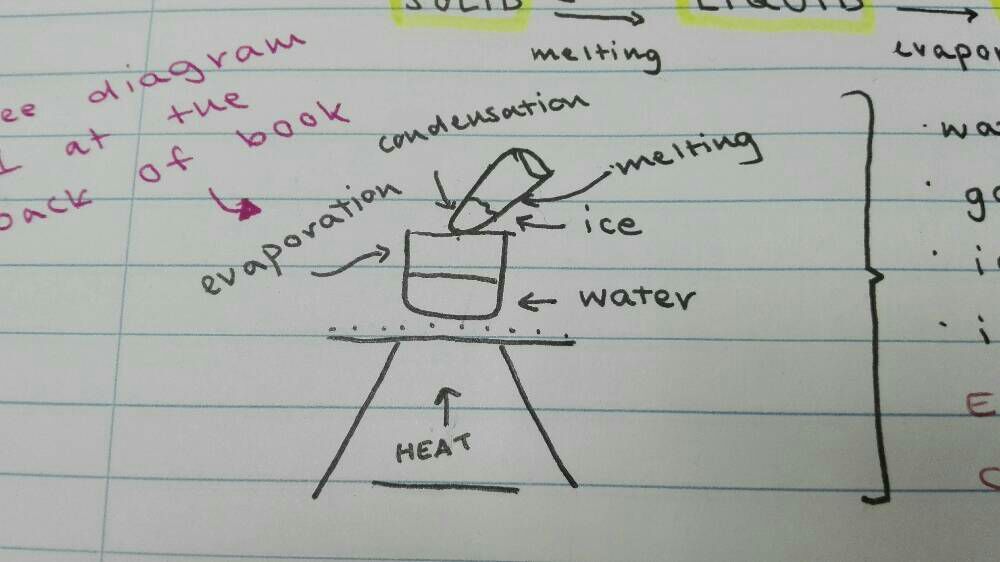 SOLID → LIQUID →
melting evapor
ee diagram
1 at the
back of book
condensation
melting
evaporation
ice
water
HEAT
· wa
· go
· i
· i
E